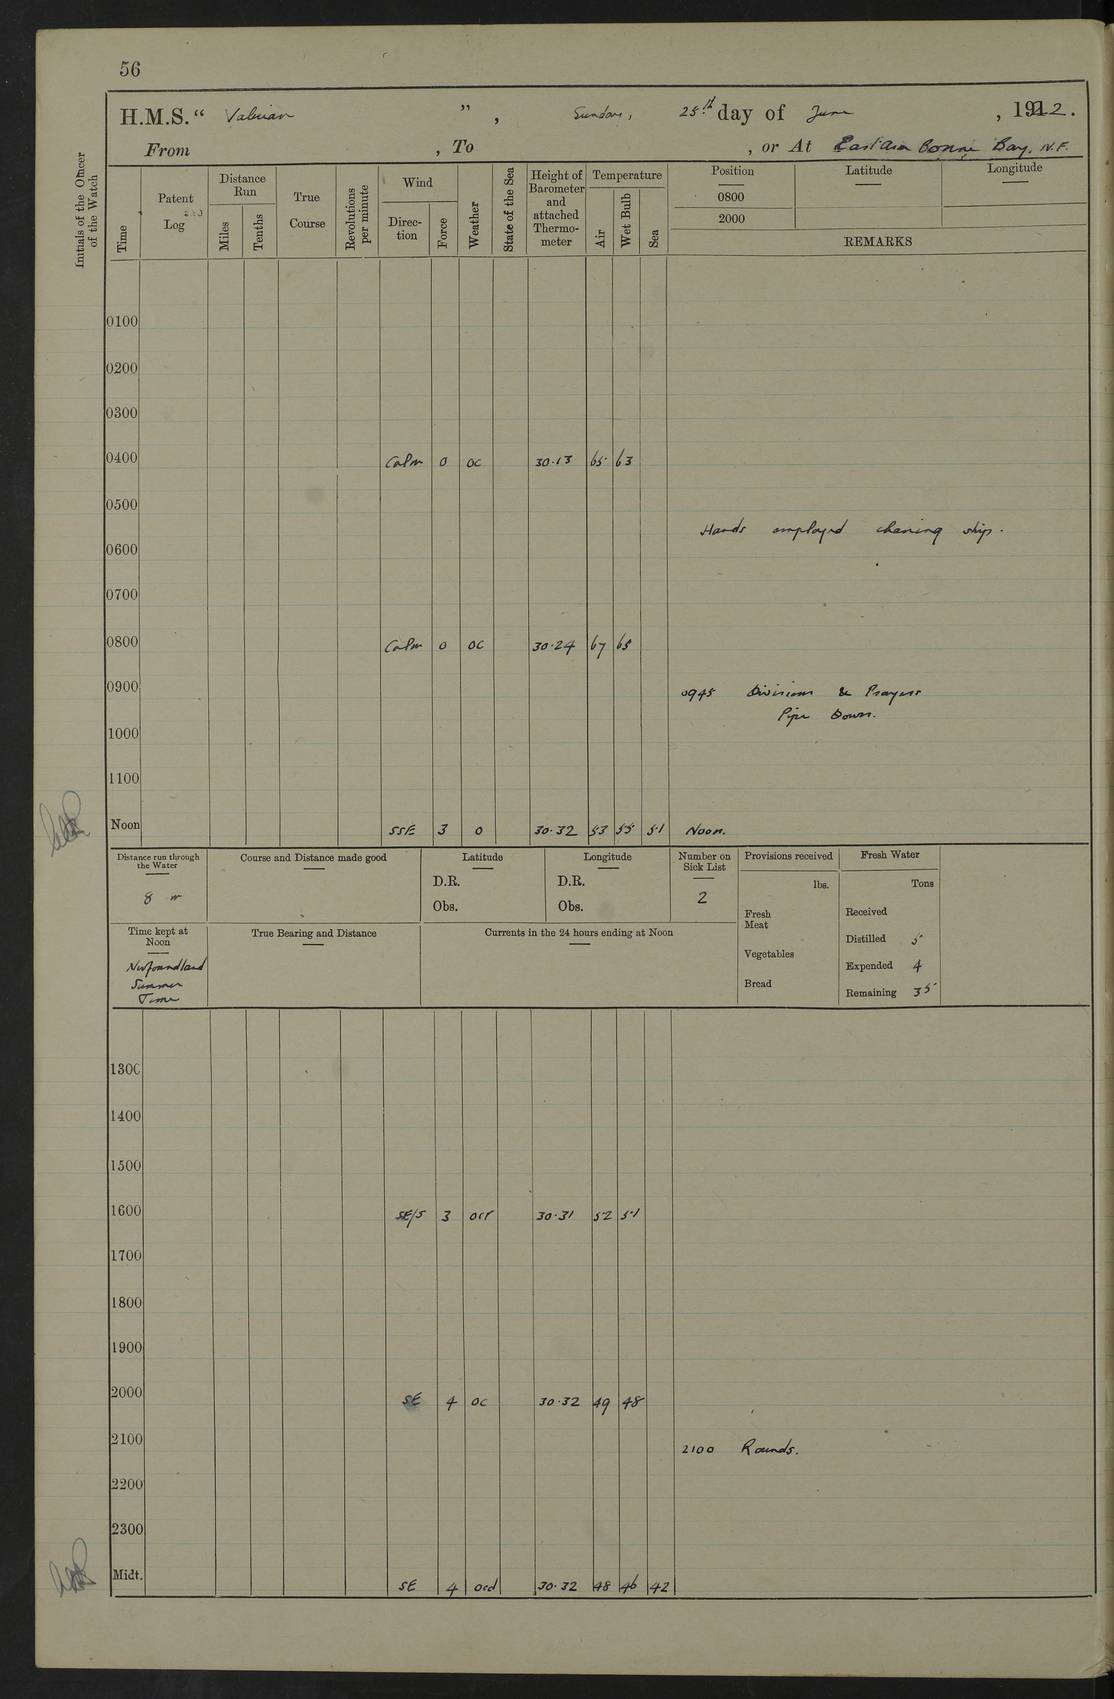 56
H.M.S. " Valerian ", Sunday, 25th day of June, 1922.
From , To , or At Eastarm Bonne Bay. N.F.
Initials of the Officer of the Watch
Time
Patent Log
Distance Run
Miles
Tenths
True Course
Revolutions per minute
Wind
Direction
Force
Weather
State of the Sea
Height of Barometer and attached Thermometer
Temperature
Air
Wet Bulb
Sea
Position
0800
2000
Latitude
Longitude
REMARKS
0100
0200
0300
0400 Calm 0 oc 30.13 65 63
0500
Hands employed cleaning ship.
0600
0700
0800 Calm 0 oc 30.24 67 65
0900 0945 Divisions & Prayers
Pipe Down.
1000
1100
Noon SSE 3 o 30.32 53 55 51 Noon.
Distance run through the Water
8
Course and Distance made good
Latitude
D.R.
Obs.
Longitude
D.R.
Obs.
Number on Sick List
2
Provisions received
lbs.
Fresh Meat
Vegetables
Bread
Fresh Water
Tons
Received
Distilled 5
Expended 4
Remaining 35
Time kept at Noon
Newfoundland
Summer
Time
True Bearing and Distance
Currents in the 24 hours ending at Noon
1300
1400
1500
1600 SE/S 3 ocr 30.31 52 51
1700
1800
1900
2000 SE 4 oc 30.32 49 48
2100 2100 Rounds.
2200
2300
Midt. SE 4 ocd 30.32 48 46 42